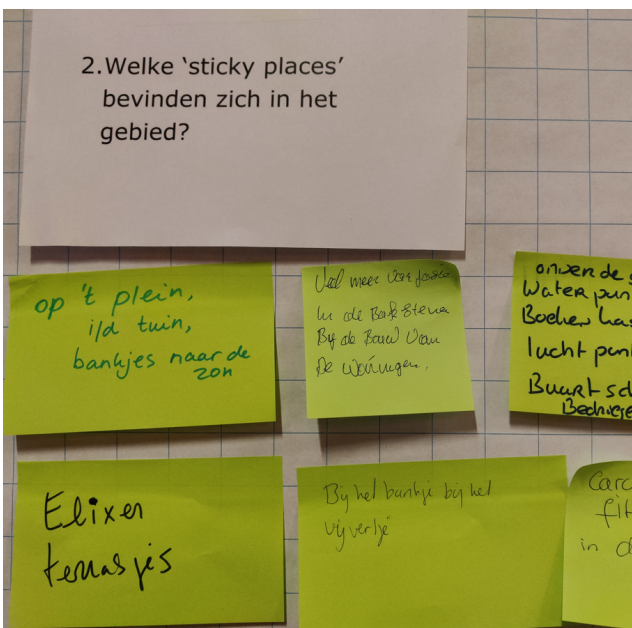 2. Welke ‘sticky places’
bevinden zich in het
gebied?
op 't plein,
i/d tuin,
bankjes naar de
zon
Veel meer
In de Bakstenen
Bij de Bouw Van
De Woningen.
Water pun
lucht pun
Buurt
Elixer
terrasjes
Bij het bankje bij het
vijvertje
fit
in d